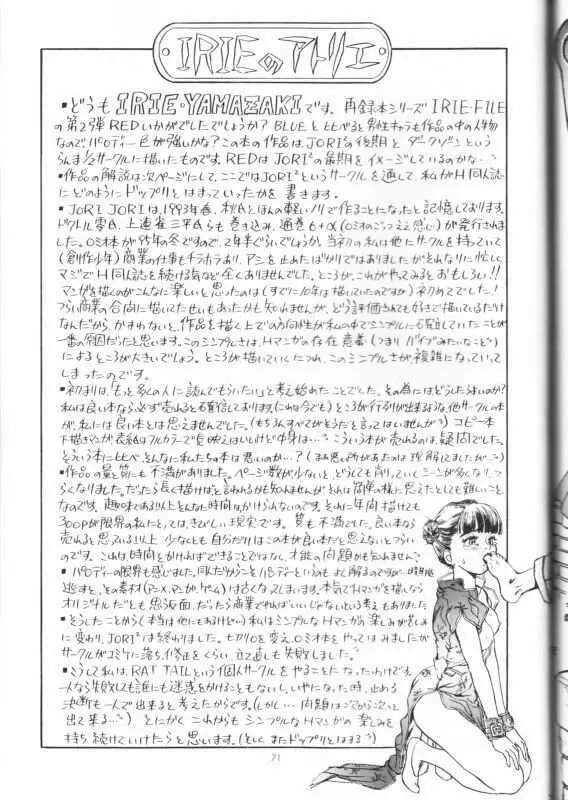 IRIEのアトリエ
・どうも IRIE・YAMAZAKI です。再録本シリーズ IRIE-FILE
の第2弾REDいかがでしたでしょうか? BLUEと比べると男性キャラも作品の中の人物
なのでパロディー色が強いかな?この本の作品は、JORI²の後期と ダークゾーンという
らんま½サークルに描いたものです。REDはJORI²の最期をイメージしているのかな…
・作品の解説は次ページにして、ここではJORI²というサークルを通して、私がH同人誌
にどのようにドップリとはまっていったかを 書きます。
・JORI JORIは、1993年春、 ほんの軽いノリで作ることになったと記憶しております。
ドクトル零氏、上連雀三平氏らも巻き込み、通巻6+α(0ミオのごっつええ感じ)が発行されま
した。0ミオ本が95年の冬ですので、2年半ぐらいでしょうか。当初の私は他にサークルを持っていて
(創作少年)商業の仕事もチラホラあり、アシを止めたばかりではありましたがそれなりに忙しく
マジでH同人誌を続ける気など全くありませんでした。ところが、これがやってみるとおもしろい!!
マンガを描くのがこんなに楽しいと思ったのは(すでに10年は描いていたのですが)初めてでした!
つらい商業の合間に描いてたせいもあったかも知れませんが、どう評価されても好きで描いているだけ
なんだから、かまわないと、作品を描く上での方向性が私の中でシンプルに確立していたことが
一番の原因だったと思います。このシンプルさは、Hマンガの存在意義(つまりバイブみたいなこと)
によるところが大きいでしょう。ところが描いていくにつれ、このシンプルさが複雑になっていって
しまったのです。
・初まりは、「もっと多くの人に読んでもらいたい」と考え始めたことでした。その為にはどうしたらよいのか?
私は良い本なら必ず売れると確信しております。(これは今でも)ところが行列が出来るような、他サークルの本
が、私には良い本とは思えませんでした。(もちろんすべてがそうだと言ってはいませんが)コピー本
下描きマンガ、表紙はフルカラーで見映えはいいけど中身は… こういう本が売れるのは、疑問でした。
そういう本に比べ、そんなに私たちの本は悪いのか…?(まあ悪い所があったのは理解してましたが…)
・作品の量と質にも不満がありました。ページ数が少ないと、どうしても削っていくシーンが多くなり、つ
らくなりました。だったら長く描けば、と言われるかも知れませんが、それは簡単の様に思えたとしても難しいこと
なのです。趣味である以上そんなに時間はかけられないのです。それに年間描けても
300Pが限界の私にとっては、きびしい現実です。質も不満でした。良い本なら
売れると思っている以上少なくとも自分だけはこの本が良い本だと思えないとつらい
のです。これは時間をかければできることではなく才能の問題かも知れません?
・パロディーの限界も感じました。同人だからこそパロディーというのもよく解るのですが…時期を
逃すと、その素材(アニメ、マンガ、ゲーム)は古くなってしまいます。本気でHマンガを描くなら
オリジナルだとも思う反面、だったら商業でやればいいじゃないという考えもありました
・そうしたことから(本当は他にもあるけど…)私はシンプルなHマンガが、楽しみが苦しみ
に変わり、JORI²は終わりました。七カリ0を変え、0ミオ本をやってはみましたが
サークルがコミケに落ち、修正をくらい、立て直しも失敗しました。
・こうして私は、RAT TAILという個人サークルをやることになったわけです。
一人なら失敗しても誰にも迷惑をかけることもないし、いやになった時、止める
決断も一人で出来ると考えたからです。(しかし… 問題は次から次へと
出て来る…) とにかくこれからもシンプルなHマンガの楽しみを
持ち続けていけたらと思います。(そして、またドップリとはまる)
71